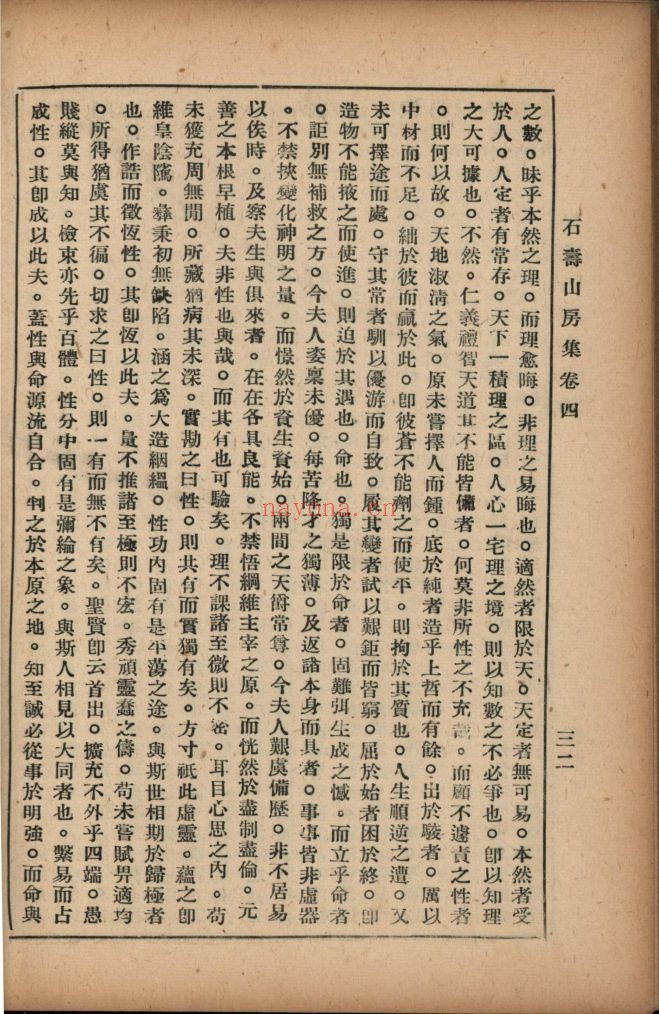 石壽山房集卷四
三二
之數。昧乎本然之理。而理愈晦。非理之易晦也。適然者限於天。天定者無可易。本然者受
於人。人定者有常存。天下一積理之區。人心一宅理之境。則以知數之不必爭也。卽以知理
之大可據也。不然。仁義禮智天道其不能皆備者。何莫非所性之不充。而顧不遽責之性者
。則何以故。天地淑清之氣。原未嘗擇人而鍾。底於純者造乎上哲而有餘。出於駁者。厲以
中材而不足。絀於彼而贏於此。卽彼蒼不能劑之而使平。則拘於其質也。人生順逆之遭。又
未可擇途而處。守其常者馴以優游而自致。履其變者試以艱鉅而皆窮。屈於始者困於終。卽
造物不能掖之而使進。則迫於其遇也。命也。獨是限於命者。固難弭生成之憾。而立乎命者
。詎別無補救之方。今夫人姿稟未優。每苦降才之獨薄。及返諸本身而具者。事事皆非虛器
。不禁挾變化神明之量。而憬然於資生資始。兩間之天爵常尊。今夫人艱虞備歷。非不居易
以俟時。及察夫生與俱來者。在在各具良能。不禁悟綱維主宰之原。而恍然於盡制盡倫。一元
善之本根早植。夫非性也與哉。而其有也可驗矣。理不課諸至微則不密。耳目心思之內。苟
未獲充周無閒。所藏猶病其未深。實勘之曰性。則共有而實獨有矣。方寸祇此虛靈。蘊之卽
維皇陰騭。彝秉初無缺陷。涵之爲大造絪縕。性功內固有是平蕩之途。與斯世相期於歸極者
也。作誥而徵恆性。其卽恆以此夫。量不推諸至極則不宏。秀頑靈蠢之儔。苟未嘗賦畀適均
。所得猶虞其不徧。切求之曰性。則一有而無不有矣。聖賢卽云首出。擴充不外乎四端。愚
賤縱莫與知。檢束亦先乎百體。性分中固有是彌綸之象。與斯人相見以大同者也。繫易而占
成性。其卽成以此夫。蓋性與命源流自合。判之於本原之地。知至誠必從事於明強。而命與
nayona.cn